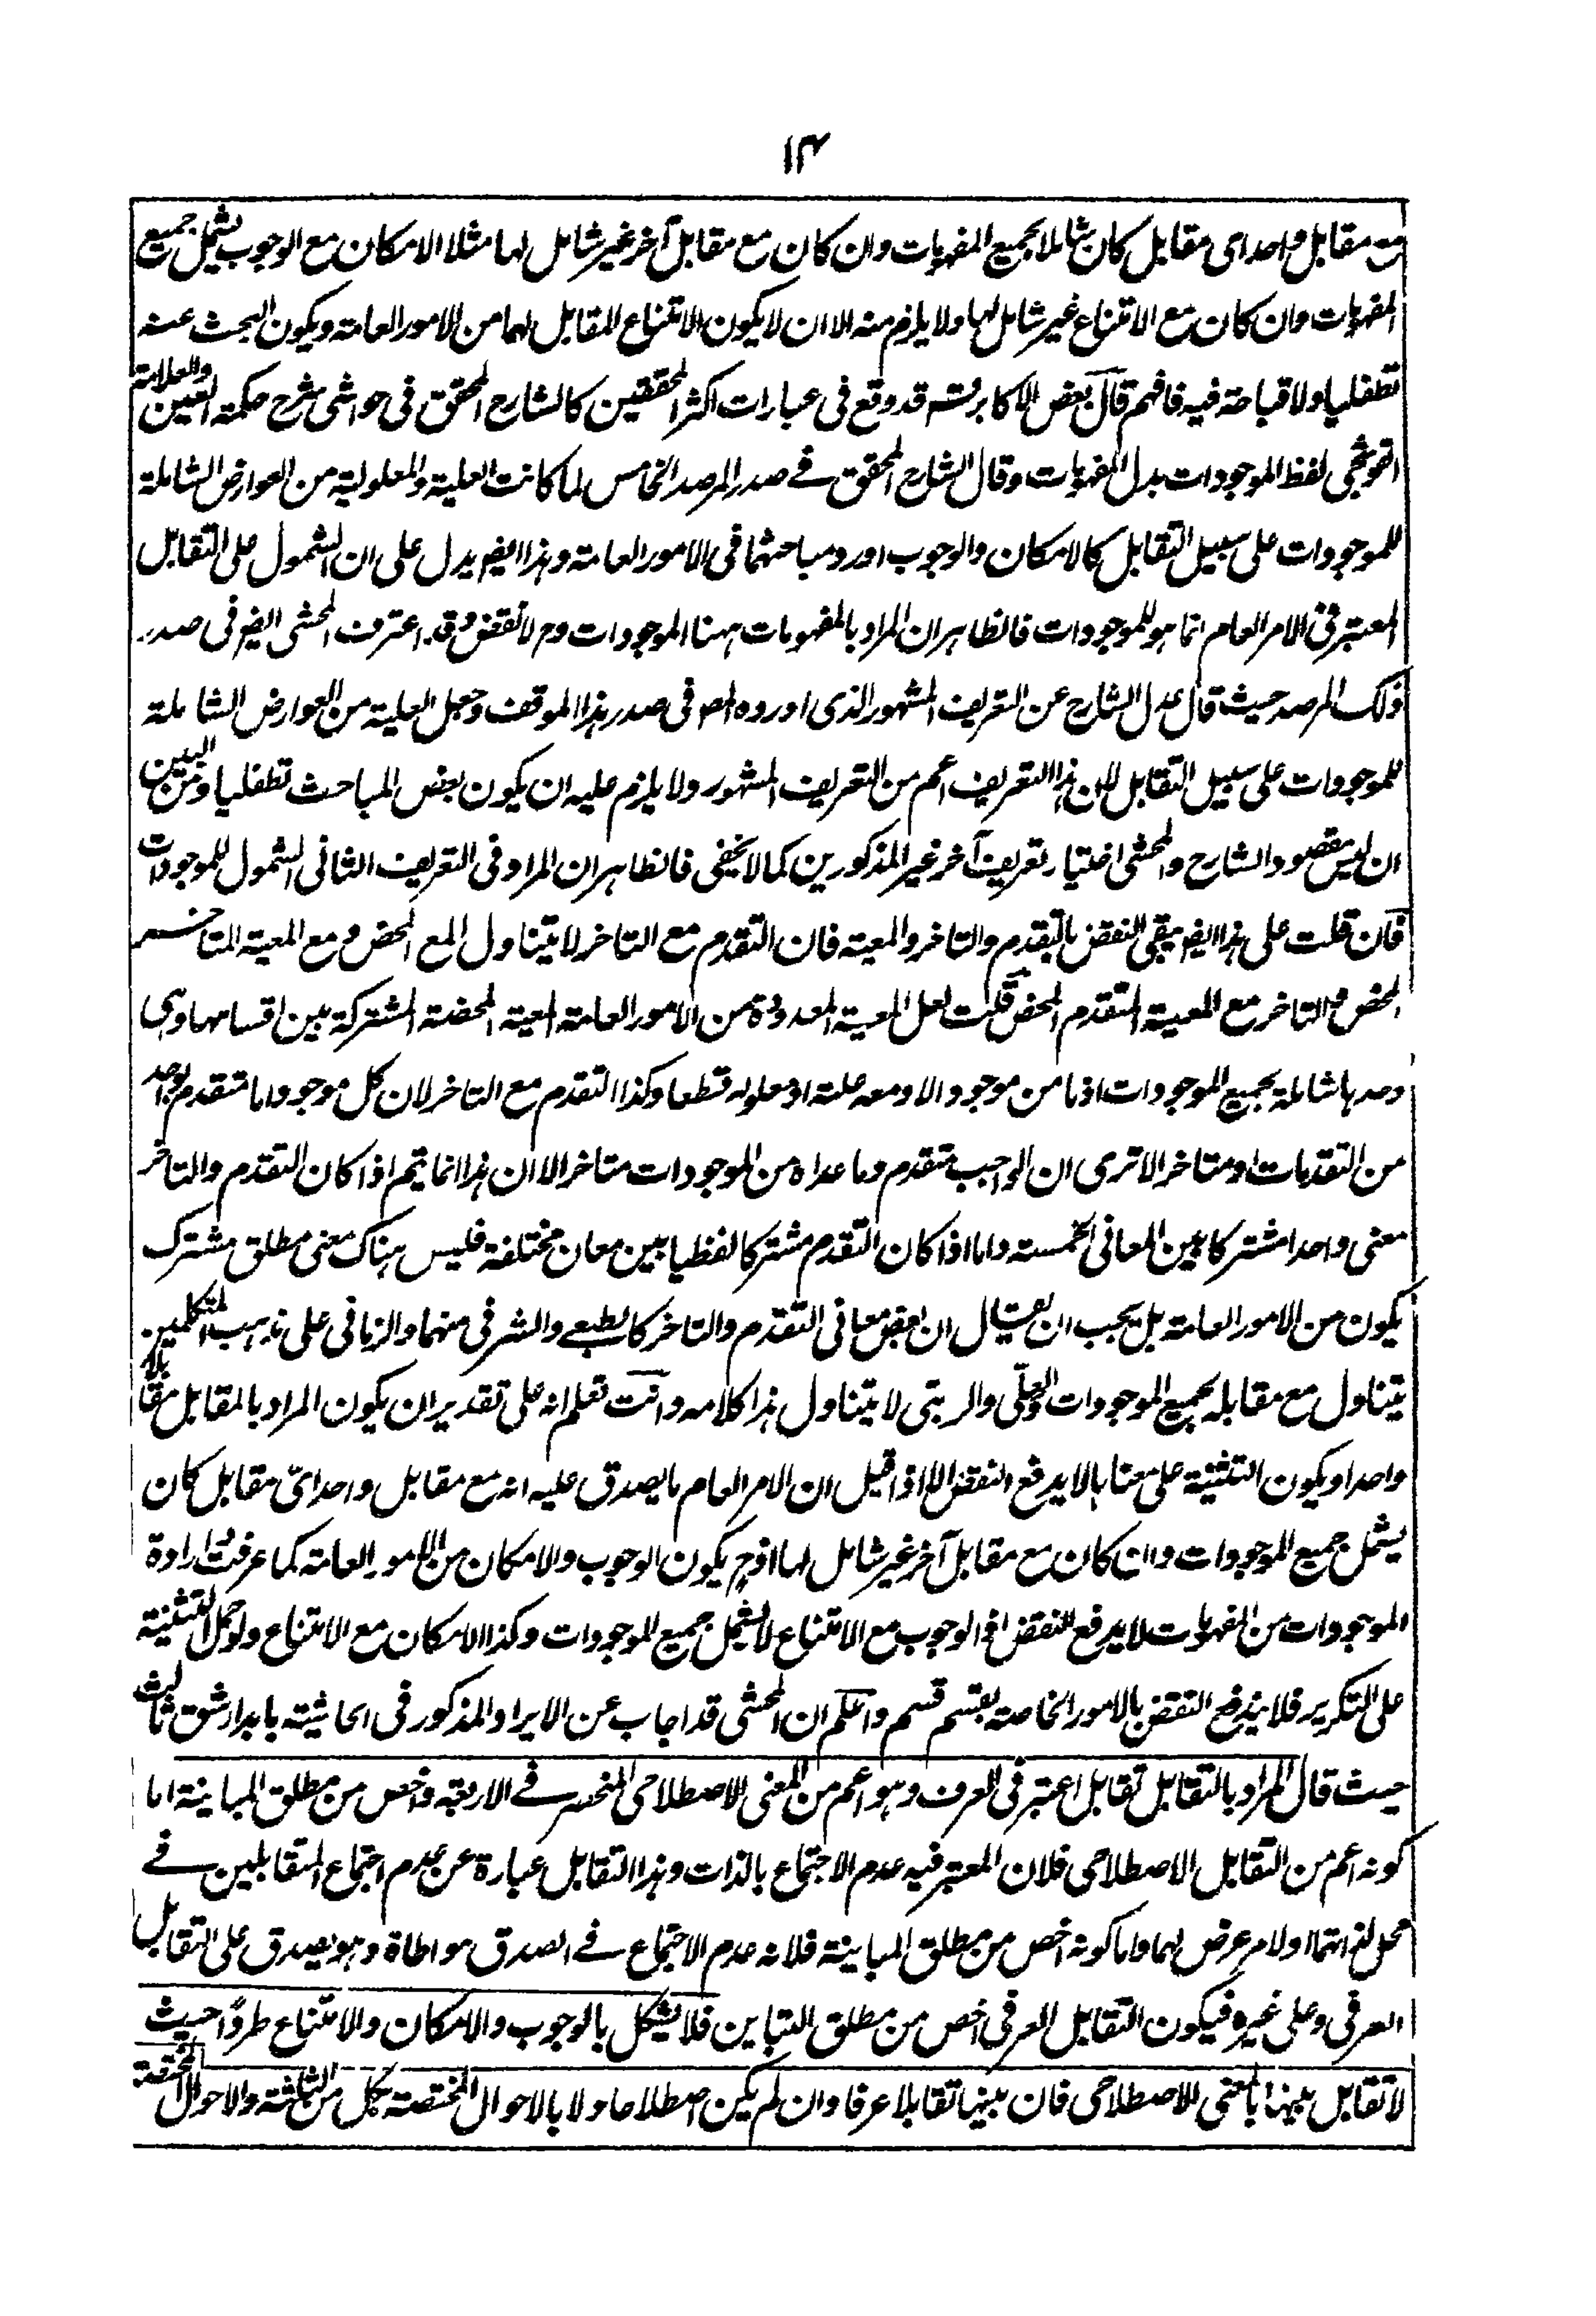 ١٤
مع مقابل واحد اى مقابل كان شاملا بجميع المفهومات وان كان مع مقابل آخر غير شامل لها مثلا الامكان مع الوجوب يشمل جميع
المفهومات وان كان مع الامتناع غير شامل لها ولا يلزم منه الا ان لا يكون الامتناع المقابل لهما من الامور العامة ويكون البحث عنه
تطفليا ولا قباحة فيه فافهم قال بعض الاكابر قد وقع فى عبارات اكثر المحققين كالشارح المحقق فى حواشى شرح حكمة العين والعلامة
القوشجى لفظ الموجودات بدل المفهومات وقال الشارح المحقق فے صدر المرصد الخامس لما كانت العلية والمعلولية من العوارض الشاملة
للموجودات على سبيل التقابل كالامكان والوجوب اورد مباحثهما فى الامور العامة وهذا ايضا يدل على ان الشمول على التقابل
المعتبر فى الامر العام انما هو للموجودات فالظاهر ان المراد بالمفهومات ههنا الموجودات وح لا نقض وقد اعترف المحشى ايضا فى صدر
ذلك المرصد حيث قال عدل الشارح عن التعريف المشهور الذى اورده المص فى صدر هذا الموقف وجعل العلية من العوارض الشاملة
للموجودات على سبيل التقابل لان هذا التعريف اعم من التعريف المشهور ولا يلزم عليه ان يكون بعض المباحث تطفليا ومن البين
ان ليس مقصود الشارح والمحشى اختيار تعريف آخر غير المذكورين كما لا يخفى فالظاهر ان المراد فى التعريف الثانى الشمول للموجودات
فان قلت على هذا ايضا يبقى النقض بالتقدم والتاخر والمعية فان التقدم مع التاخر لا يتناول المع المحض ومع المعية المتاخر
المحض والتاخر مع المعية المتقدم المحض قلت لعل المعية المعدودة من الامور العامة المعية المحضة المشتركة بين اقسامها وهى
وحدها شاملة بجميع الموجودات اذ ما من موجود الا ومعه علته او معلوله قطعا وكذا التقدم مع التاخر لان كل موجود اما متقدم بواحد
من التقدمات او متاخر الا ترى ان الواجب متقدم وما عداه من الموجودات متاخر الا ان هذا انما يتم اذا كان التقدم والتاخر
معنى واحدا مشتركا بين المعانى الخمسة واما اذا كان التقدم مشتركا لفظيا بين معان مختلفة فليس هناك معنى مطلق مشترك
يكون من الامور العامة بل يجب ان يقال ان بعض معانى التقدم والتاخر كالطبعے والشرفى منهما والزمانى على مذهب المتكلمين
يتناول مع مقابله بجميع الموجودات والعلى والرتبى لا يتناول هذا كلامه وانت تعلم انه على تقدير ان يكون المراد بالمقابل مقابلا
واحدا ويكون التثنية على معناها لا يدفع النقض الا اذا قيل ان الامر العام ما يصدق عليه انه مع مقابل واحد اىّ مقابل كان
يشمل جميع الموجودات وان كان مع مقابل آخر غير شامل لها اذ ح يكون الوجوب والامكان من الامور العامة كما عرفت ارادة
الموجودات من المفهومات لا يدفع النقض اذ الوجوب مع الامتناع لا يشمل جميع الموجودات وكذا الامكان مع الامتناع ولو حمل التثنية
على التكرير فلا يندفع النقض بالامور الخاصة بقسم قسم واعلم ان المحشى قد اجاب عن الايراد المذكور فى الحاشية بابداء شق ثالث
حيث قال المراد بالتقابل تقابل اعتبر فى العرف وهو اعم من المعنى الاصطلاحى المنحصر فے الاربعة واخص من مطلق المباينة اما
كونه اعم من التقابل الاصطلاحى فلان المعتبر فيه عدم الاجتماع بالذات وهذا التقابل عبارة عن عدم اجتماع المتقابلين فے
محل لذاتهما او لامر عرض لهما واما كونه اخص من مطلق المباينة فلانه عدم الاجتماع فے الصدق مواطاة وهو يصدق على التقابل
العرفى وعلى غيره فيكون التقابل العرفى اخص من مطلق التباين فلا يشكل بالوجوب والامكان والامتناع طردًا حيث
لا تقابل بينها بالمعنى الاصطلاحى فان بينها تقابلا عرفا وان لم يكن اصطلاحا ولا بالاحوال المختصة بكل من الثلثة والاحوال المختصة